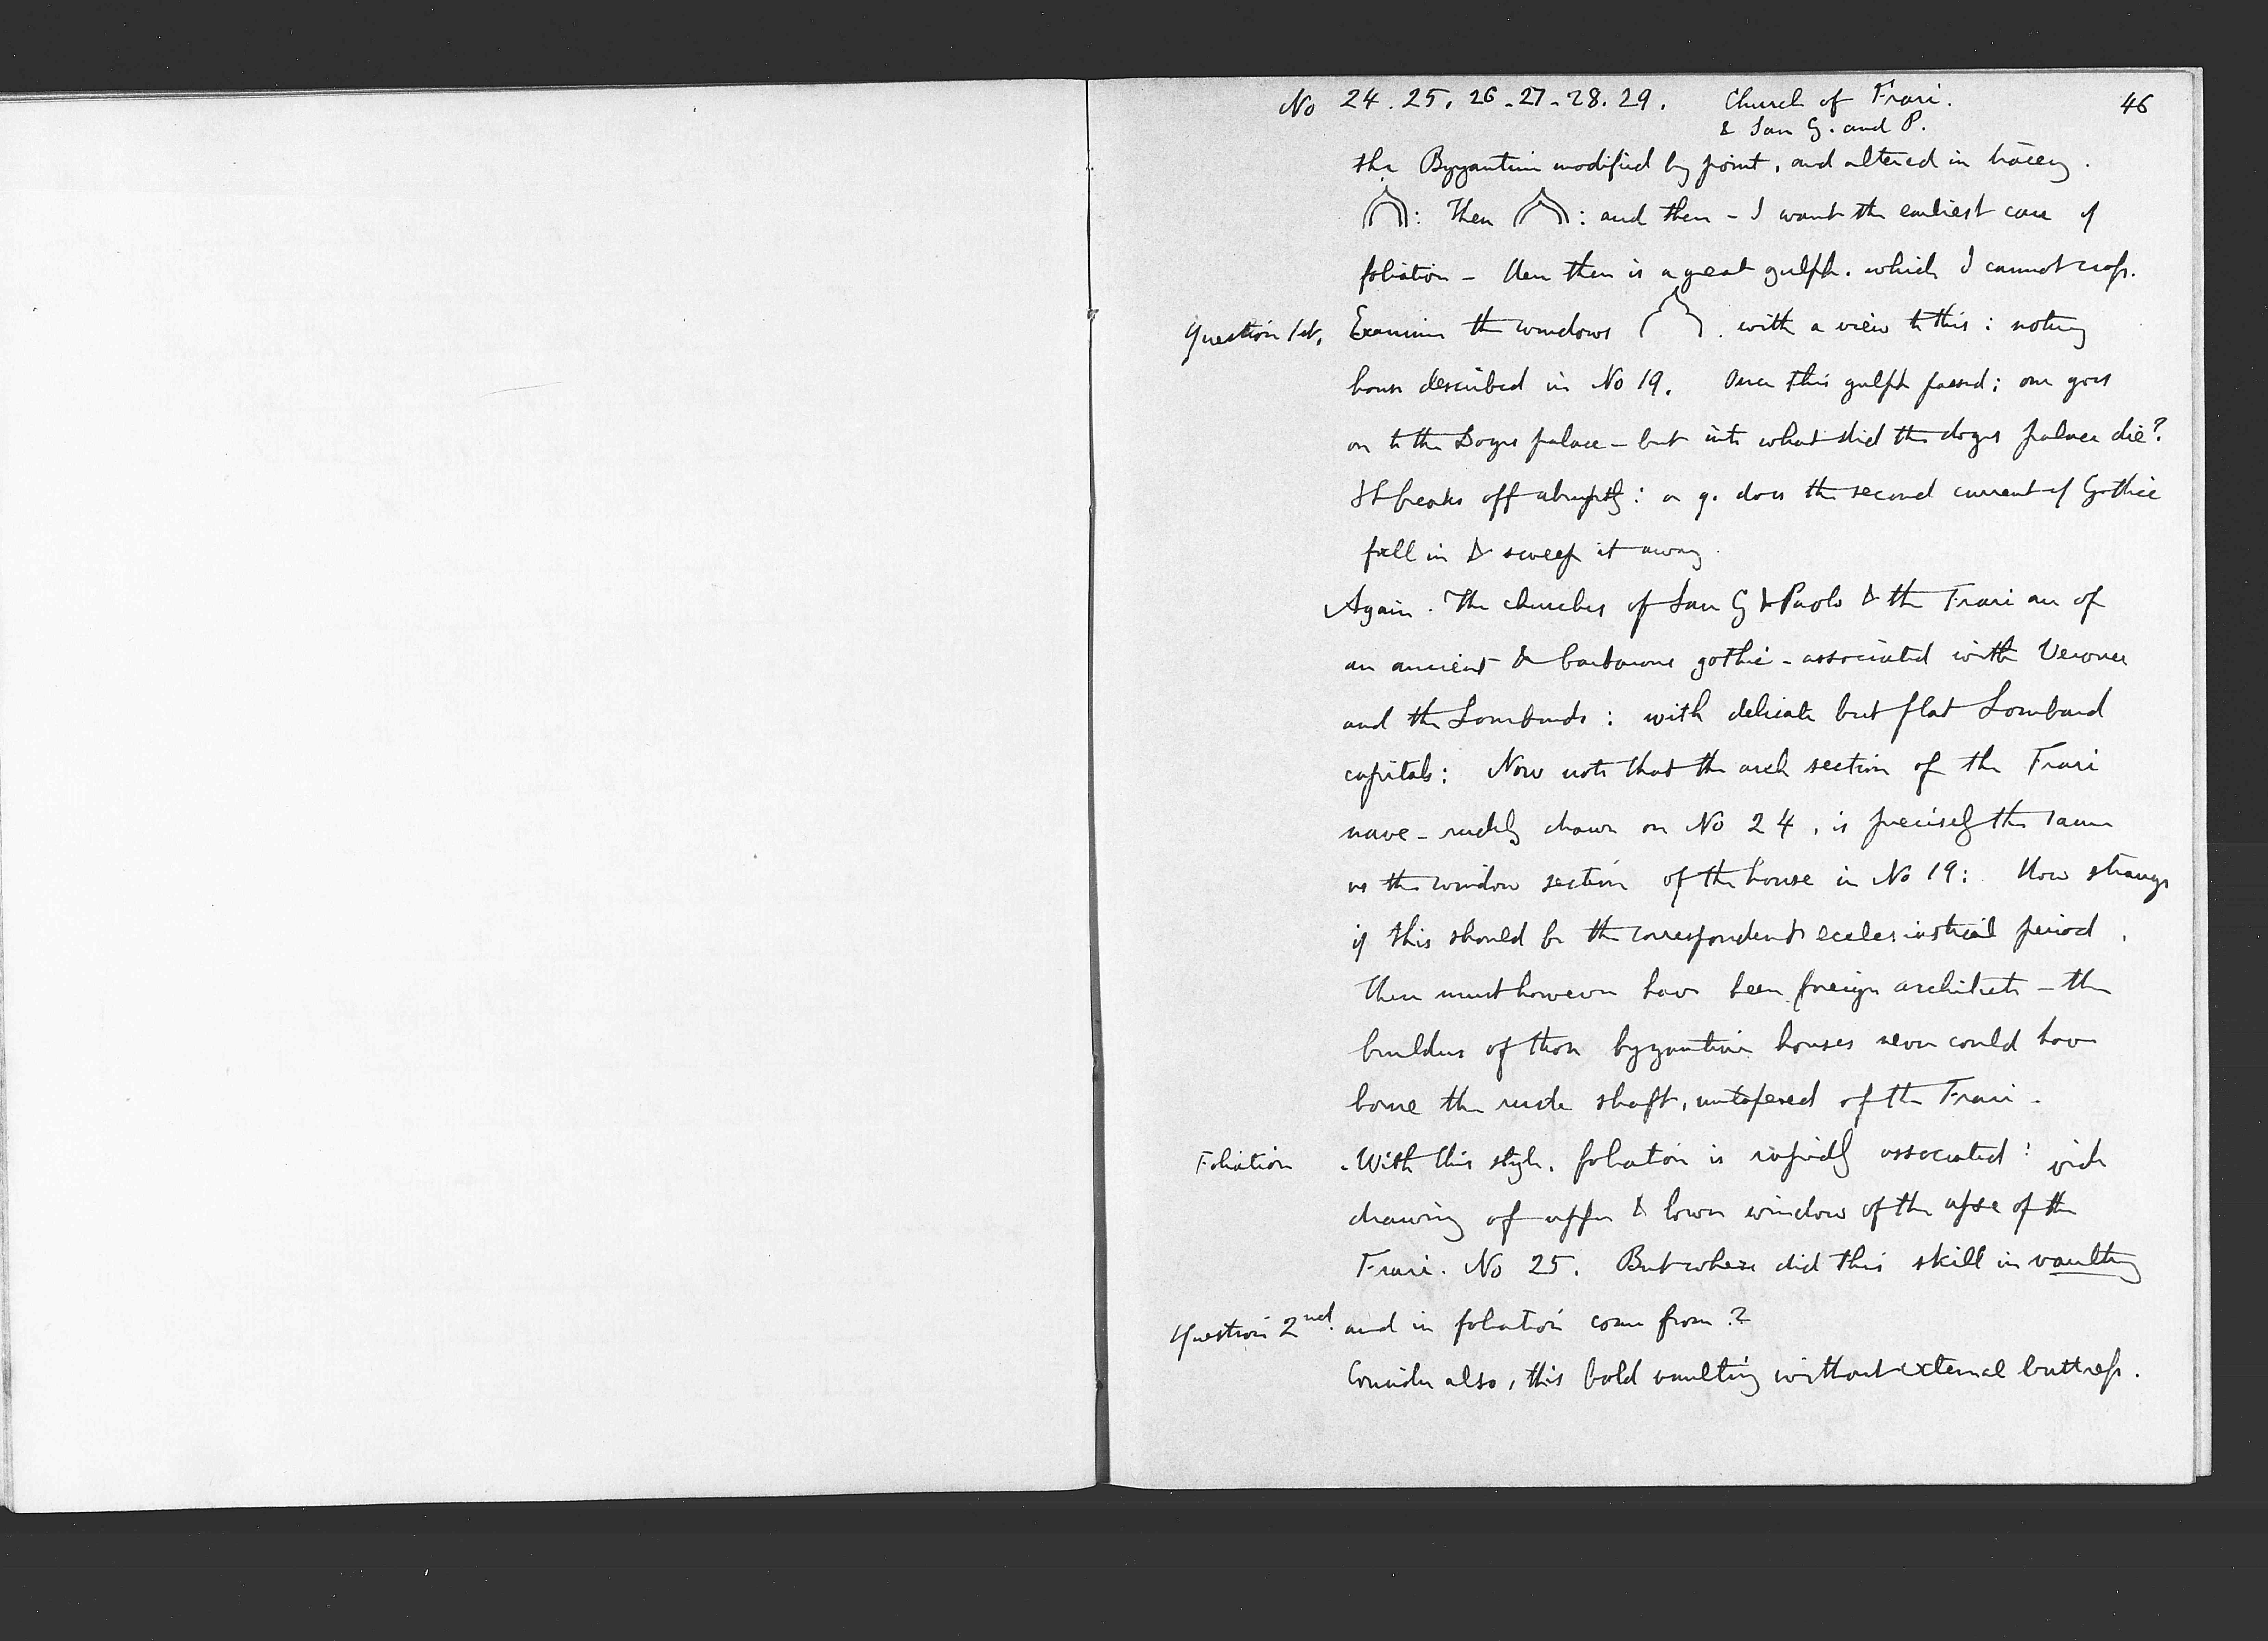 No 24. 25. 26 - 27 - 28. 29. Church of Frari. 46
& San G. and P.
the Byzantine modified by point, and altered in tracery.
: Then : and then - I want the earliest case of
foliation - Here then is a great gulph. which I cannot cross.
Question 1st. Examine the windows . with a view to this : noting
house described in No 19. Once this gulph passed; one goes
on to the Doges palace - but into what did the doges palace die?
It breaks off abruptly: or q. does the second current of Gothic
fall in & sweep it away.
Again. The churches of San G & Paolo & the Frari are of
an ancient & barbarous gothic - associated with Verona
and the Lombards : with delicate but flat Lombard
capitals: Now note that the arch section of the Frari
nave - rudely drawn on No 24, is precisely the same
as the window section of the house in No 19: How strange
if this should be the correspondent ecclesiastical period.
There must however have been foreign architects - the
builders of those byzantine houses never could have
borne the rude shaft, untapered of the Frari.
Foliation . With this style, foliation is rapidly associated : vide
drawing of upper & lower window of the apse of the
Frari. No 25. But where did this skill in vaulting
Question 2nd. and in foliation come from?
Consider also, this bold vaulting without external buttress.